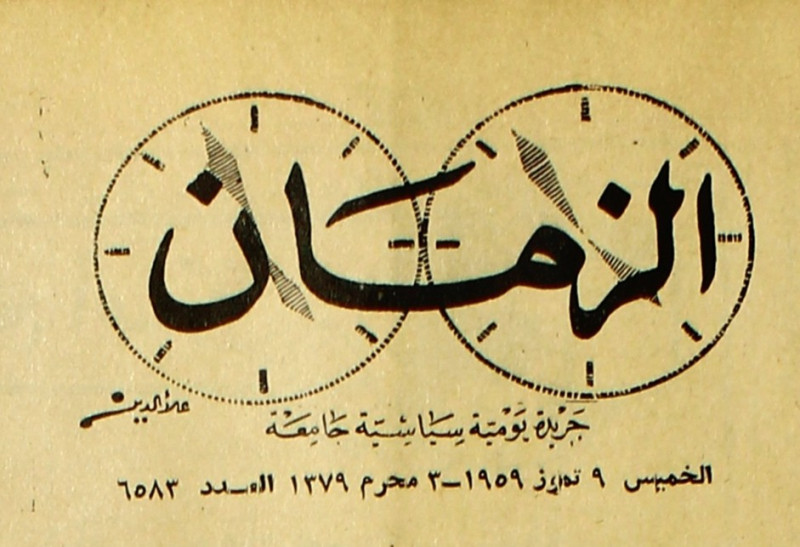 الزمان
علاء الدين
جريدة يومية سياسية جامعة
الخميس ٩ تموز ١٩٥٩ – ٣ محرم ١٣٧٩ العدد ٦٥٨٣